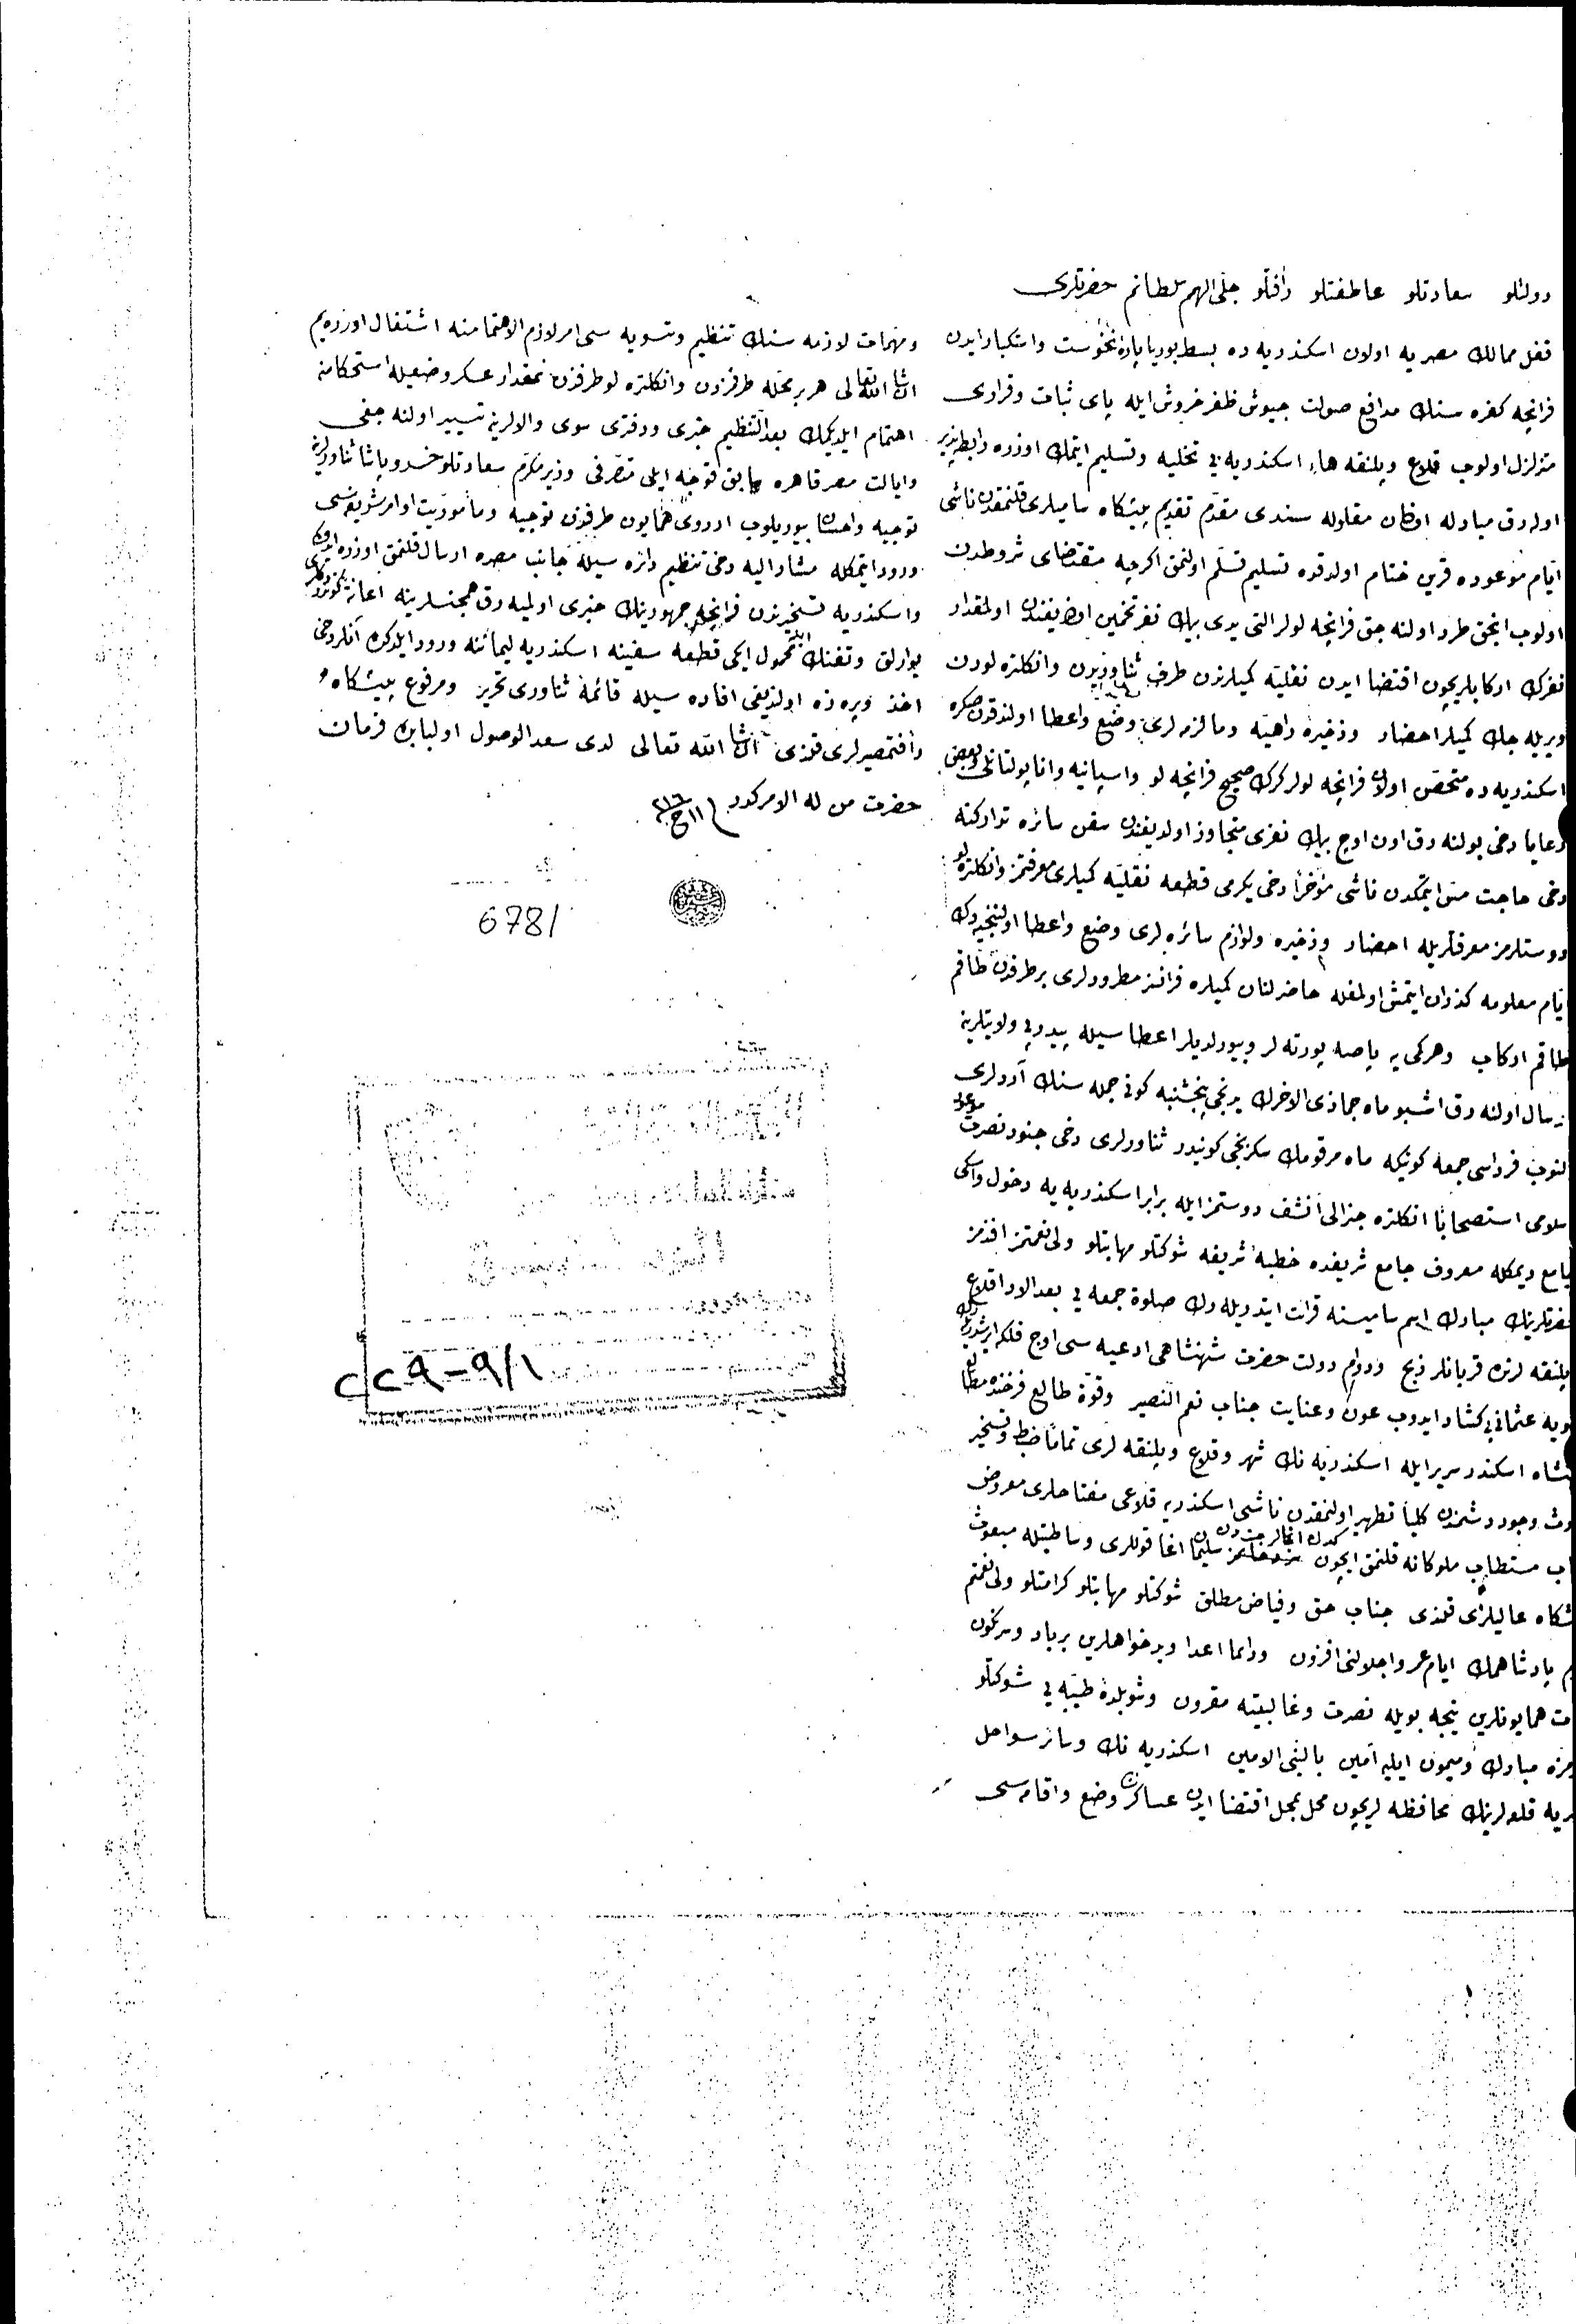 دولتلو سعادتلو عاطفتلو رأفتلو جلی الهمم سلطانم حضرتلری
قفل ممالك مصریه اولان اسكندریه ده بسط بوریا پاره نخوست واستكبار ایدن
فرانچه كفره سنك مدافع صولت جیوش ظفر خروش ایله پای ثبات وقراری
متزلزل اولوب قلاع وپلنقه هاء اسكندریه یی تخلیه وتسلیم ایتمك اوزره رابطه پذیر
اوله رق مبادله اولنان مقاوله سندی مقدم تقدیم پیشكاه سامیلری قلنمقدن ناشی
ایام موعوده قرین ختام اولدقده تسلیم تسلم اولنمق اكرچه مقتضای شروطدن
اولوب انجق طرد اولنه جق فرانچه لولر التی یدی بیك نفر تخمین اولندیغندن اولمقدار
نفرك اركابلریچون اقتضا ایدن نقلیه كمیلرندن طرف ثناوریدن وانكلتره لودن
ویریله جك كمیلر احضار وذخیره راهیه ومالزمه لری وضع واعطا اولندقدن صكره
اسكندریه ده متحصن اولان فرانچه لولر كرك صحیح فرانچه لو واسپانیه وانابولتانلی وبعض
رعایا دخی بولنه رق اون اوچ بیك نفری متجاوز اولدیغندن سفن سائره تداركنه
دخی حاجت مس ایتمكدن ناشی مؤخرا دخی یكرمی قطعه نقلیه كمیلری معرفتمز وانكلتره لو
دوستلرمز معرفتلریله احضار وذخیره ولوازم سائره لری وضع واعطا اولننجیه دك
ایام معلومه كذران ایتمش اولمغله حاضرلنان كمیلره فرانسز مطرودلری بر طرفدن طاقم
طاقم اركاب وهر كمی یه یاصه پورته لر وبیورلدیلر اعطا سیله پیدرپی ولایتلرینه
ارسال اولنه رق اشبو ماه جمادی الاخرك یدنجی پنجشنبه كونی جمله سنك آردلری
النوب فرداسی جمعه كونیكه ماه مرقومك سكزنجی كونیدر ثناورلری دخی جنود نصرت موعود
اسلامی استصحابا انكلتره جنرالی انشف دوستمز ایله برابر اسكندریه یه دخول واسكی
جامع دیمكله معروف جامع شریفده خطبه شریفه شوكتلو مهابتلو ولی نعمتمز افندمز
حضرتلرینك مبارك اسم سامیسنه قرائت ایتدیریله رك صلوة جمعه یی بعد الادا قلاع
وپلنقه لرنده قربانلر ذبح ودوام دولت حضرت شهنشاهی ادعیه سی اوج فلكه ایرشدیریله رك
عثمانی یی كشاد ایدوب عون وعنایت جناب نعم النصیر وقوة طالع فرخنده مطالع
شاه اسكندر سریر ایله اسكندریه نك شهر وقلاع وپلنقه لری تماما ضبط وتسخیر
وجود دشمندن كلیا تطهیر اولنمقدن ناشی اسكندریه قلاعی مفتاحلری معروض
مستطاب ملوكانه قلنمق ایچون كدك اغالرمزدن سلیم اغا قوللری وساطتیله مبعوث
پیشكاه عالیلری قلندی جناب حق وفیاض مطلق شوكتلو مهابتلو كرامتلو ولی نعمتم
پادشاهمك ایام عمر واجلالنی افزون ودائما اعدا وبدخواهلرین برباد وسرنكون
همایونلرین نیجه بویله نصرت وغالبیته مقرون وشو بلده طیبه یی شوكتلو
مبارك ومیمون ایلیه آمین بالنبی الامین اسكندریه نك وسائر سواحل
قلعه لرینك محافظه لریچون محل بمحل اقتضا ایدن عساكرك وضع واقامه سی
ومهمات لازمه سنك تنظیم وتسویه سی امر لازم الاهتمامنه اشتغال اوزره یم
ان شاء الله تعالی هر بر محله طرفزدن وانكلتره لو طرفندن بمقدار عسكر وضعیله استحكامنه
اهتمام ایلدیكمك بعد التنظیم خبری ودفتری سوی والالرینه تسییر اولنه جغی
وایالت مصر قاهره سابق قوجه ایلی متصرفی وزیر مكرم سعادتلو خسرو پاشا ثناورلرینه
توجیه واحسان بیوریلوب اردوی همایون طرفندن توجیه ومأموریت اوامر شریفه سی
ورود ایتمكله مشار الیه دخی تنظیم دائره سیله جانب مصره ارسال قلنمق اوزره ایدوكی
واسكندریه تسخیرندن فرانچه جمهورینك خبری اولمیه رق همجنسلرینه اعانه كوندردكلری
یوارلق وتفنك ایله محمول ایكی قطعه سفینه اسكندریه لیماننه ورود ایلدكده آنلر دخی
اخذ ویره ده اولندیغی افاده سیله قائمه ثناوری تحریر ومرفوع پیشكاه
رأفتمصیرلری قلندی ان شاء الله تعالی لدی سعد الوصول اولبابده فرمان
حضرت من له الامركدر
١١ ج ٢١٦
6781
٢٢٩-٩/١